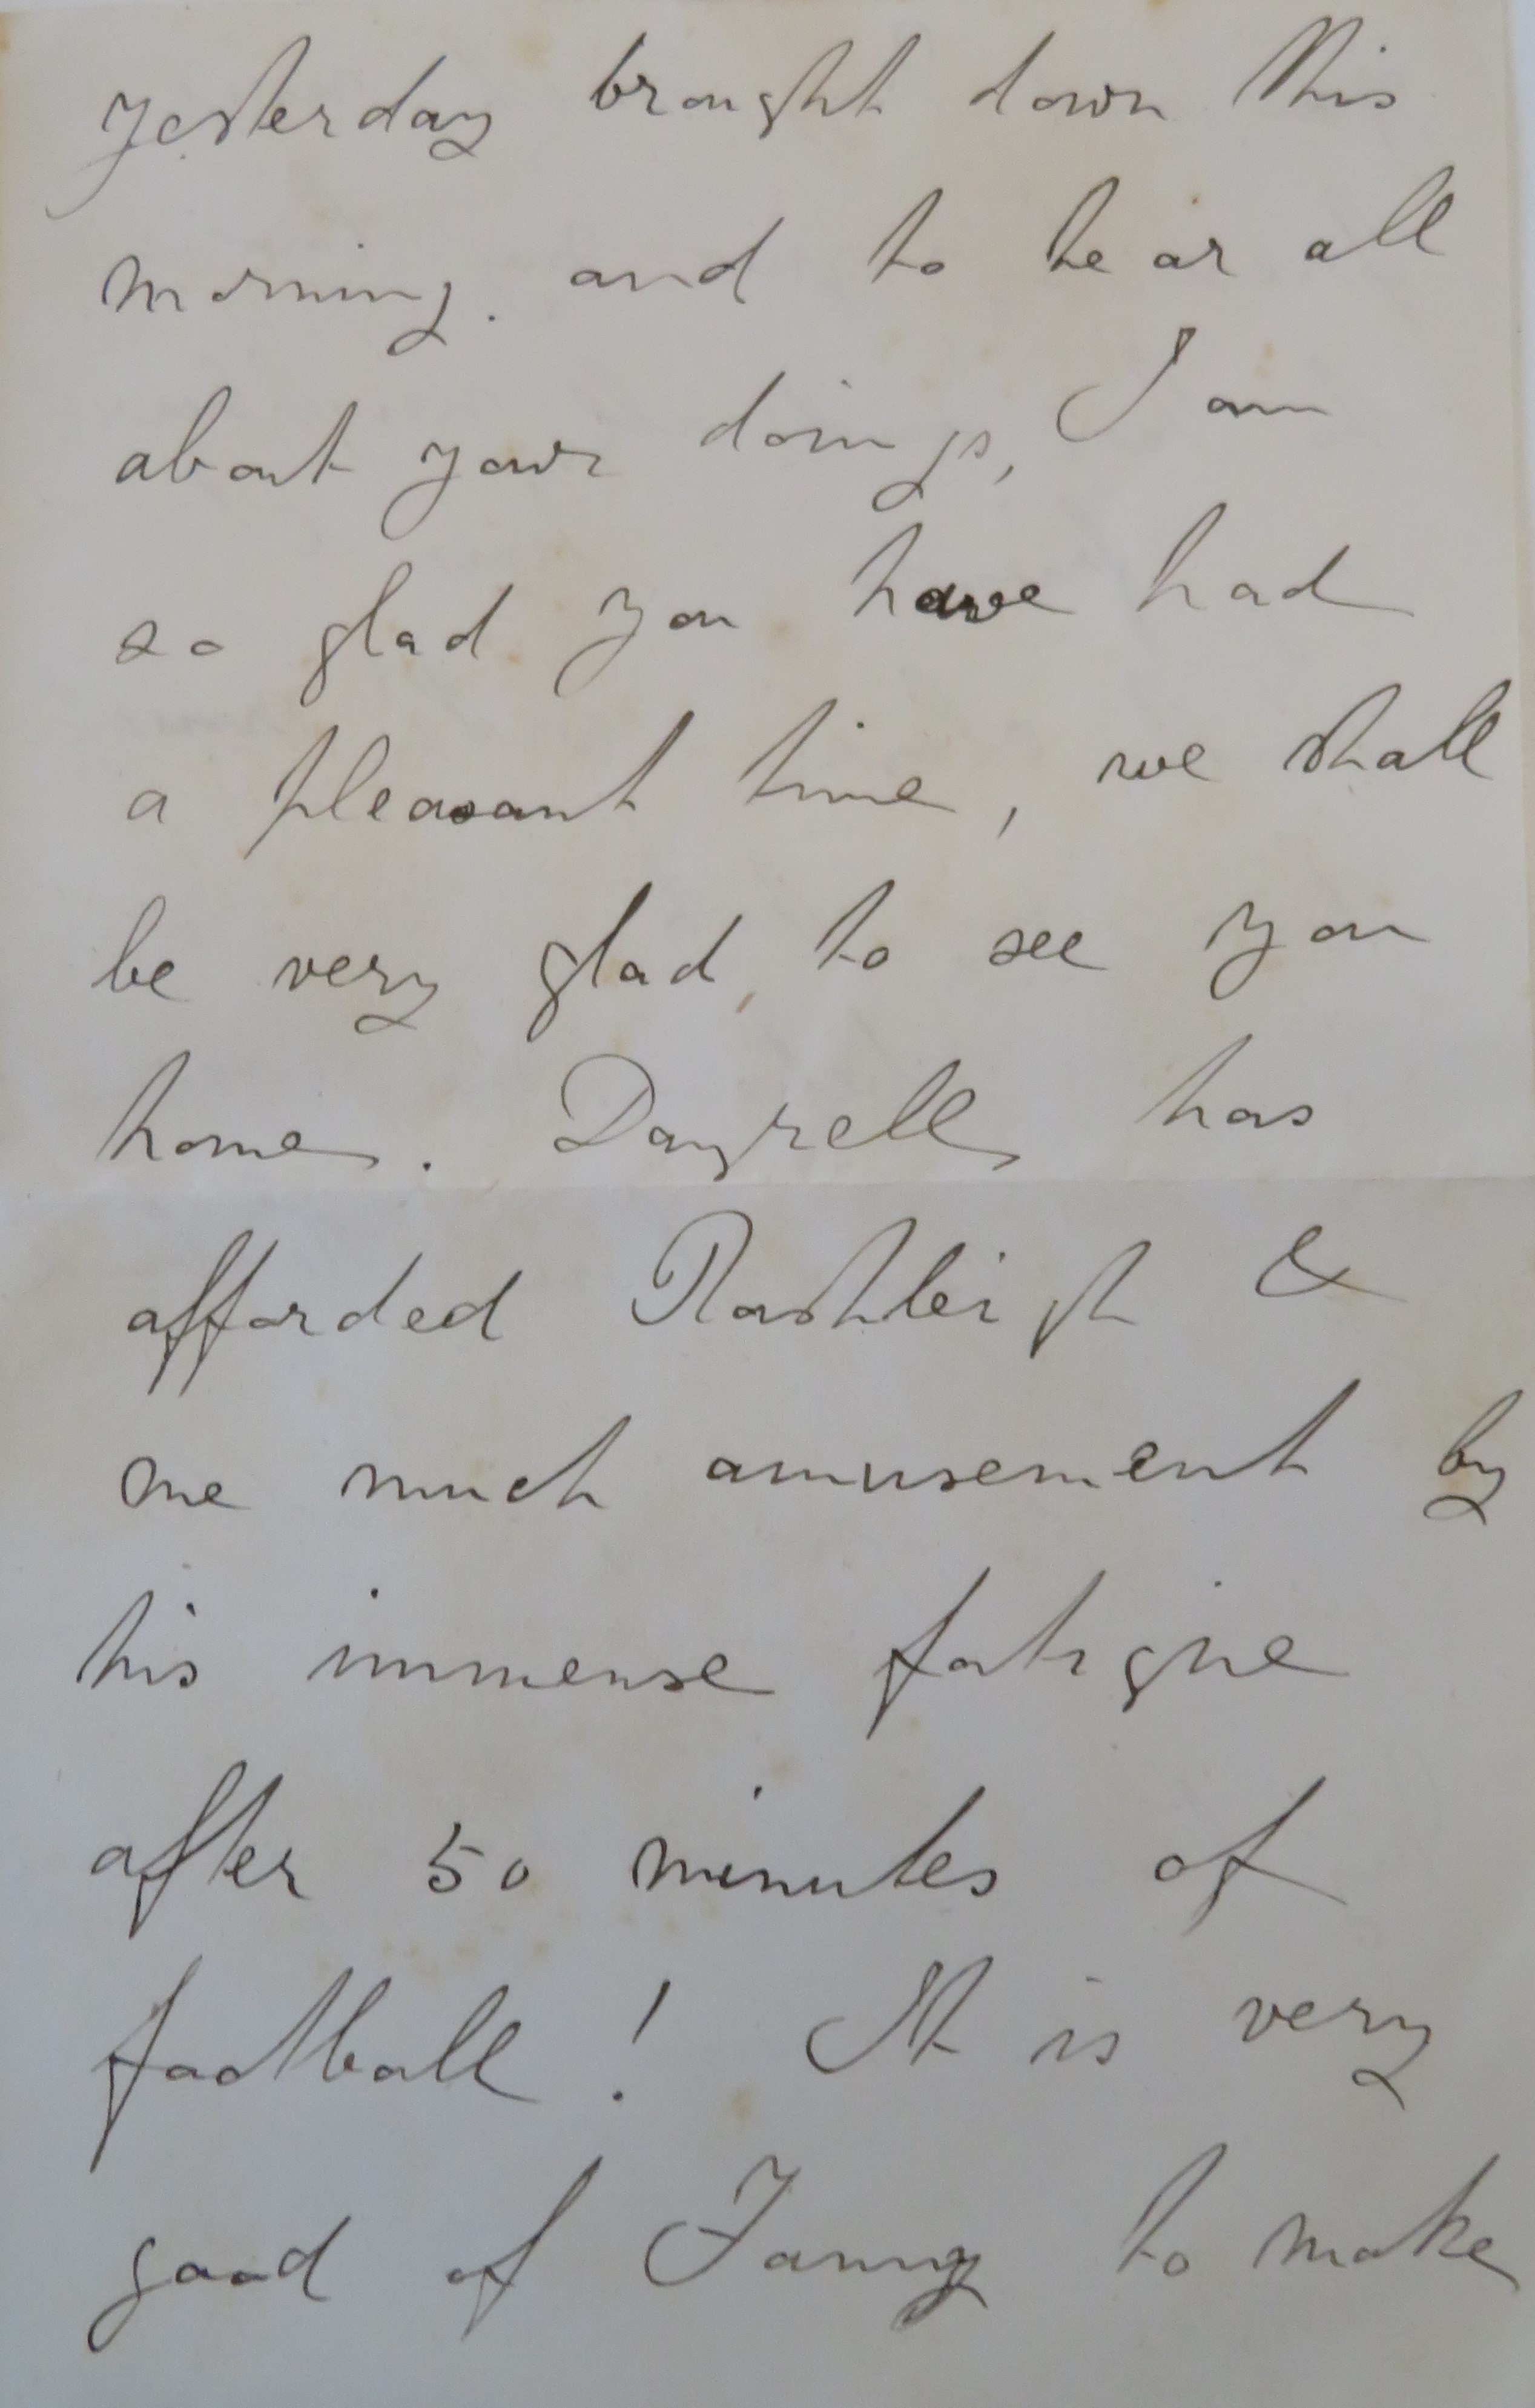 yesterday brought down this
morning. and to hear all
about your doings, I am
so glad you have had
a pleasant time, we shall
be very glad to see you
home. Dayrell has
afforded Rashleigh &
me much amusement by
his immense fatigue
after 50 minutes of
football! It is very
good of Fanny to make